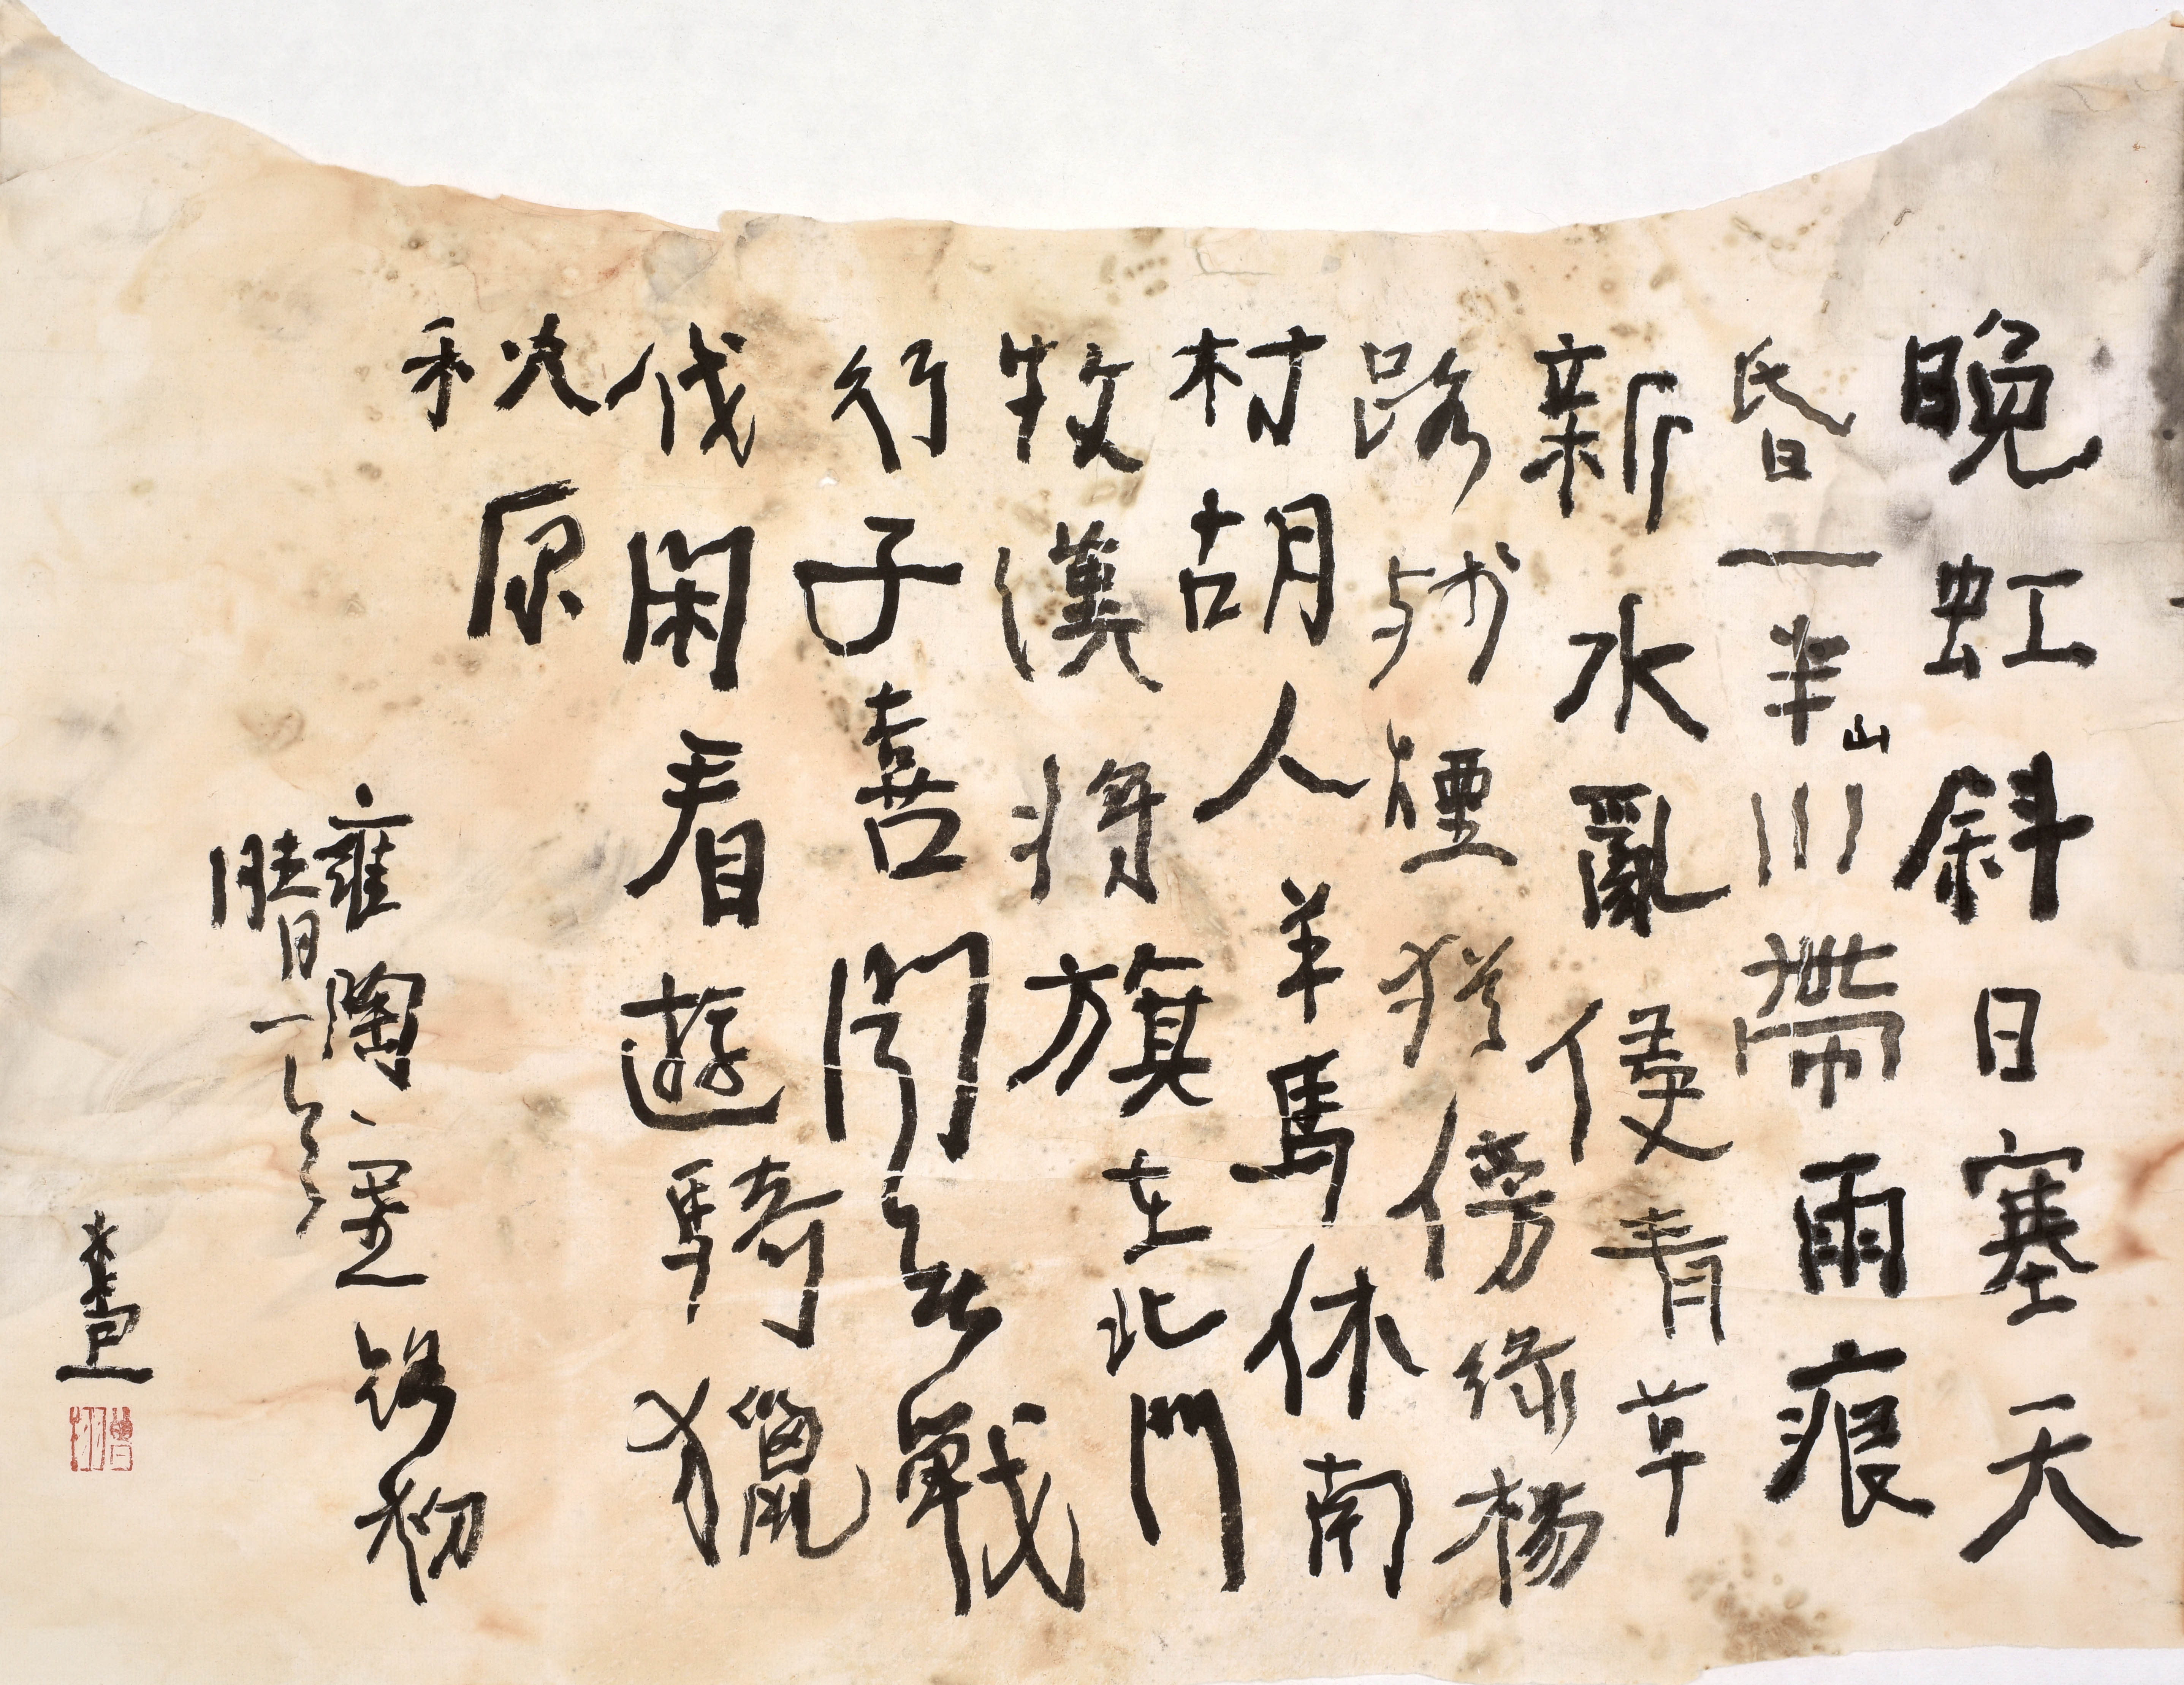 晚虹斜日塞天
昏一半山川帶雨痕
新水亂侵青草
路殘煙猶傍綠楊
村胡人羊馬休南
牧漢將旗在北門
行子喜聞無戰
伐閑看遊騎獵
秌原
雍陶 路初
晴 一
曾翔